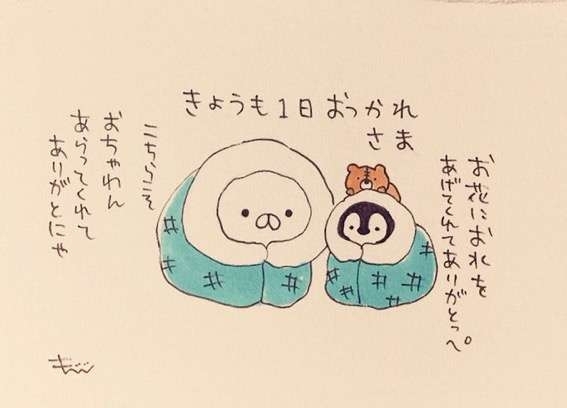 きょうも1日おつかれ
さま
お花におれを
あげてくれてありがとっぺ。
こちらこそ
おちゃわん
あらってくれて
ありがとにゃ